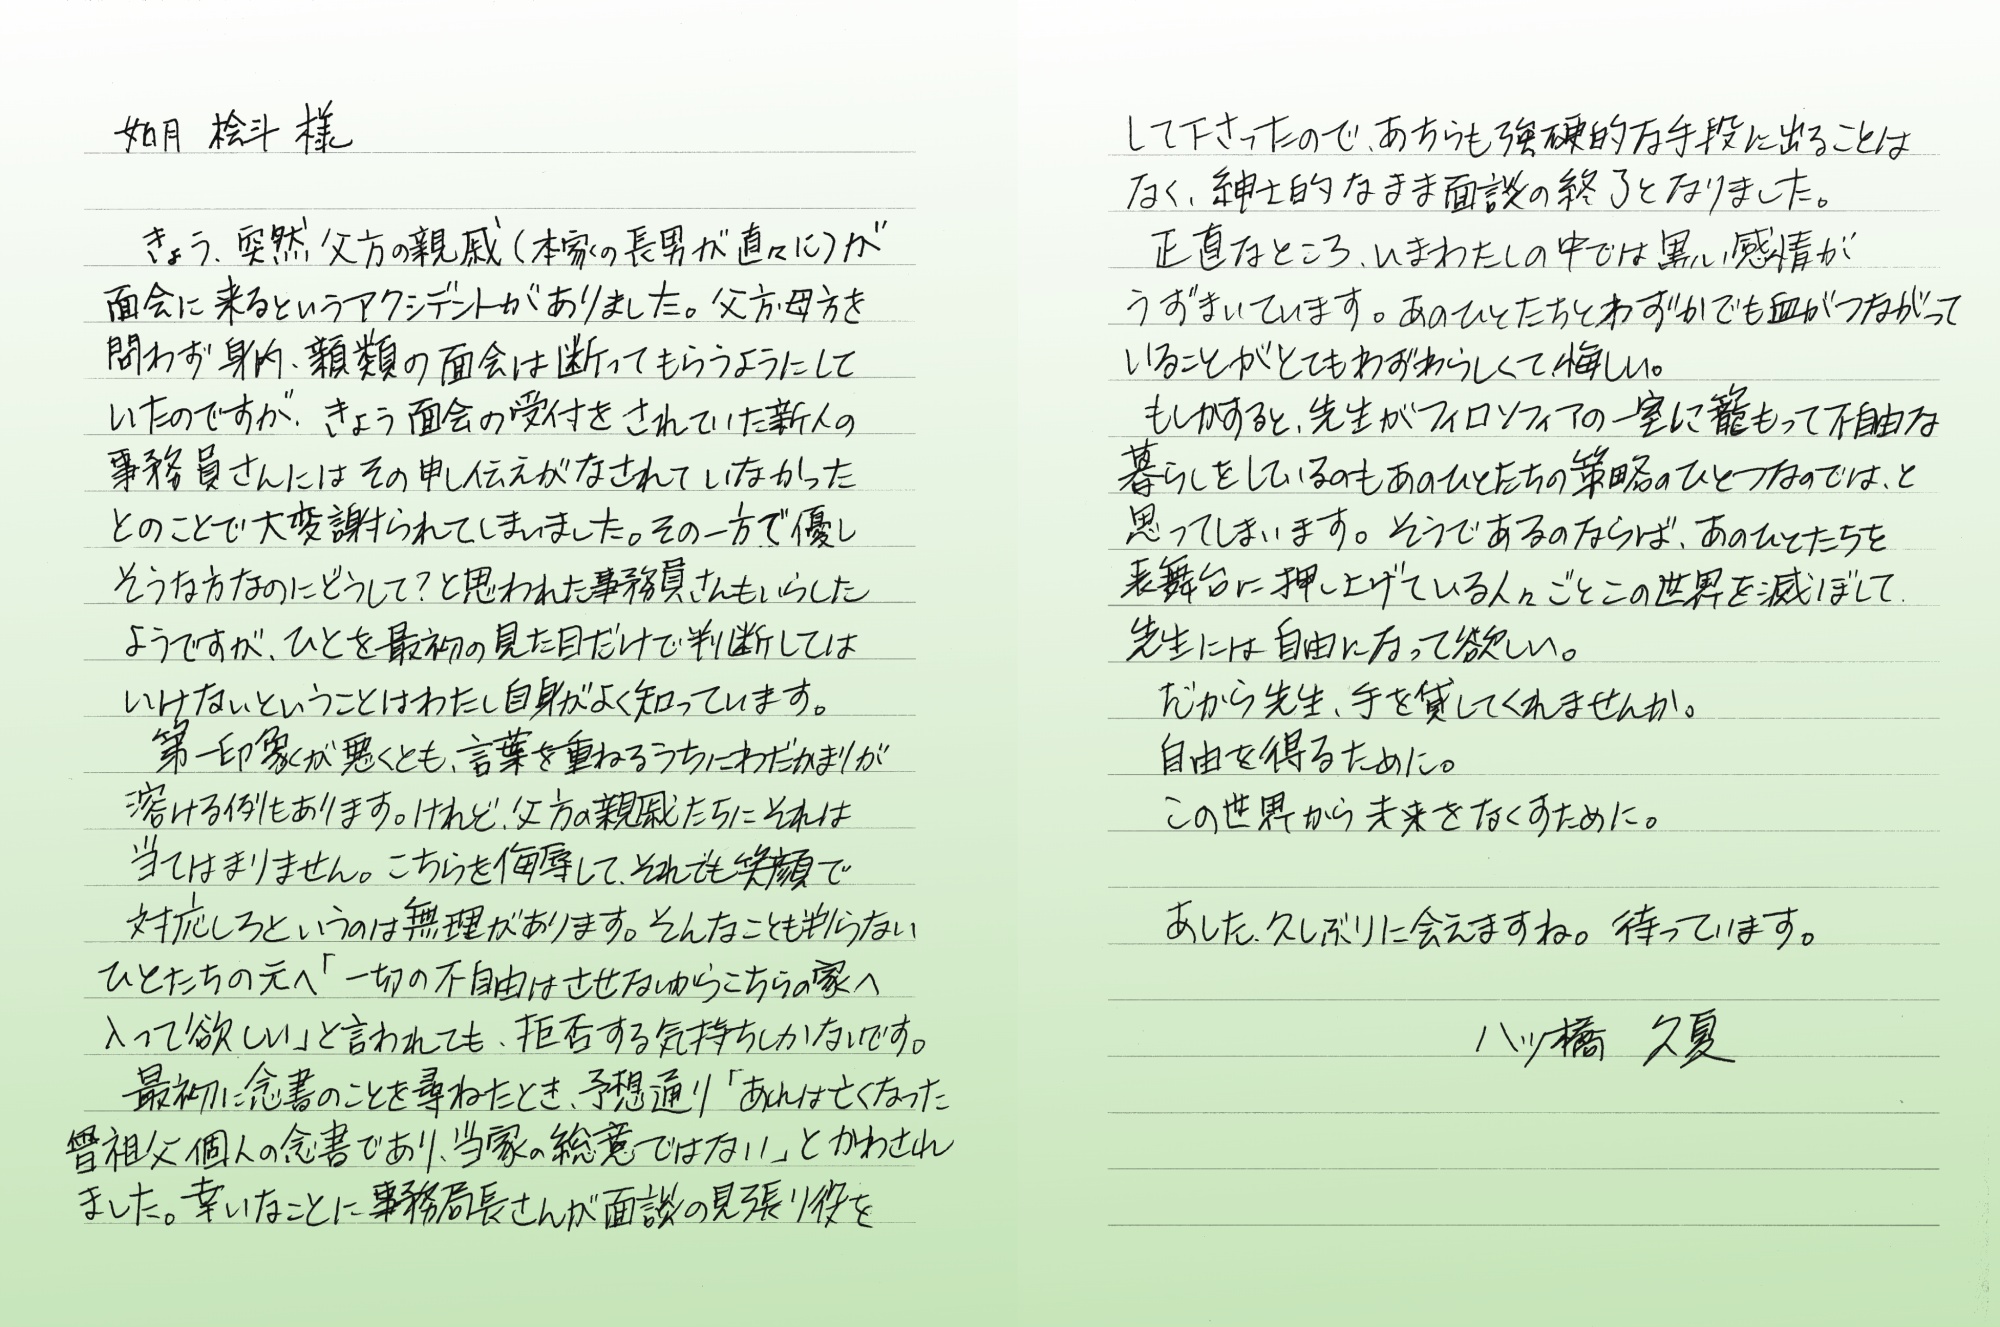 如月 桧斗 様
きょう、突然父方の親戚(本家の長男が直々に)が
面会に来るというアクシデントがありました。父方・母方を
問わず身内、親類の面会は断ってもらうようにして
いたのですが、きょう面会の受付をされていた新人の
事務員さんにはその申し伝えがなされていなかった
とのことで大変謝られてしまいました。その一方で優し
そうな方なのにどうして?と思われた事務員さんもいらした
ようですが、ひとを最初の見た目だけで判断しては
いけないということはわたし自身がよく知っています。
第一印象が悪くとも、言葉を重ねるうちにわだかまりが
溶ける例もあります。けれど、父方の親戚たちにそれは
当てはまりません。こちらを侮辱して、それでも笑顔で
対応しろというのは無理があります。そんなことも判らない
ひとたちの元へ「一切の不自由はさせないからこちらの家へ
入って欲しい」と言われても、拒否する気持ちしかないです。
最初に念書のことを尋ねたとき、予想通り「あれは亡くなった
曾祖父個人の念書であり、当家の総意ではない」とかわされ
ました。幸いなことに事務局長さんが面談の見張り役を
して下さったので、あちらも強硬的な手段に出ることは
なく、紳士的なまま面談の終了となりました。
正直なところ、いまわたしの中では黒い感情が
うずまいています。あのひとたちとわずかでも血がつながって
いることがとてもわずわらしくて、悔しい。
もしかすると、先生がフィロソフィアの一室に籠もって不自由な
暮らしをしているのもあのひとたちの策略のひとつなのでは、と
思ってしまいます。そうであるのならば、あのひとたちを
表舞台に押し上げている人々ごとこの世界を滅ぼして、
先生には自由になって欲しい。
だから先生、手を貸してくれませんか。
自由を得るために。
この世界から未来をなくすために。
あした、久しぶりに会えますね。待っています。
八ッ橋 久夏